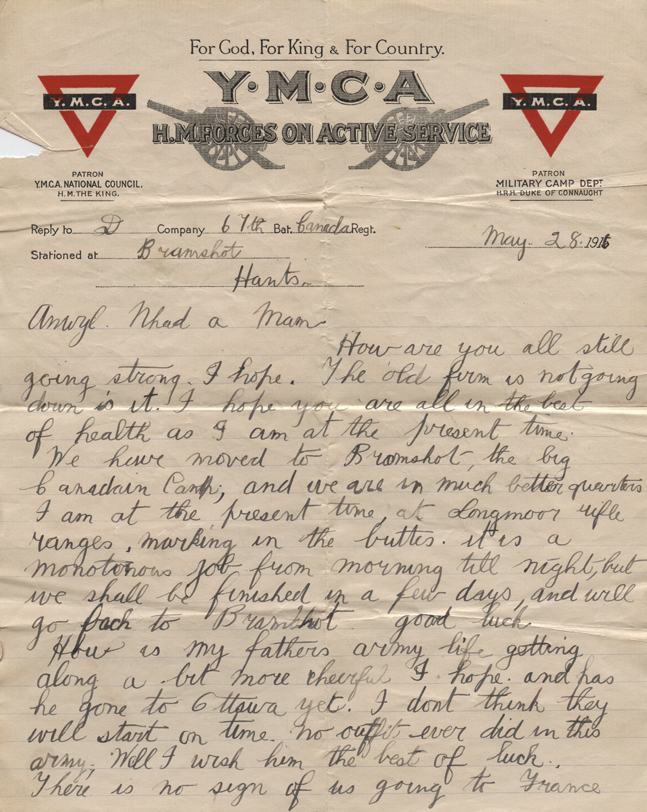 For God, For King & For Country.
Y·M·C·A
H.M. FORCES ON ACTIVE SERVICE
Y.M.C.A.
PATRON
Y.M.C.A. NATIONAL COUNCIL.
H.M. THE KING.
Y.M.C.A.
PATRON
MILITARY CAMP DEPT
H.R.H. DUKE OF CONNAUGHT
Reply to D Company 67th Bat. Canada Regt.
Stationed at Bramshot
Hants.
May. 28. 1916
Anwyl. Nhad a Mam
How are you all still
going strong. I hope. The old firm is not going
down is it. I hope you are all in the best
of health as I am at the present time.
We have moved to Bramshot, the big
Canadain Camp, and we are in much better quarters
I am at the present time, at Longmoor rifle
ranges, marking in the butts. it is a
monotonous job from morning till night, but
we shall be finished in a few days, and will
go back to Bramshot good luck
How is my fathers army life getting
along a bit more cheerful I hope. and has
he gone to Ottawa yet. I dont think they
will start on time. no outfit ever did in this
army. Well I wish him the best of luck.
There is no sign of us going to France